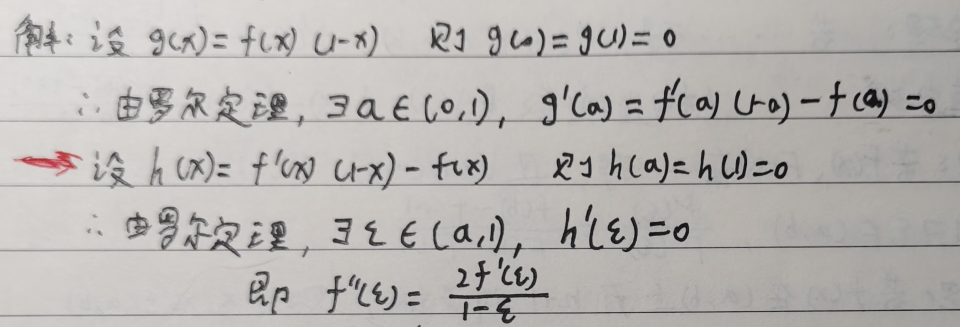 解：设 g(x)=f(x)(1-x) 则 g(0)=g(1)=0
∴由罗尔定理，∃a∈(0,1)，g'(a)=f'(a)(1-a)-f(a)=0
设 h(x)=f'(x)(1-x)-f(x) 则 h(a)=h(1)=0
∴由罗尔定理，∃ξ∈(a,1)，h'(ξ)=0
即 f''(ξ)=2f'(ξ)/(1-ξ)